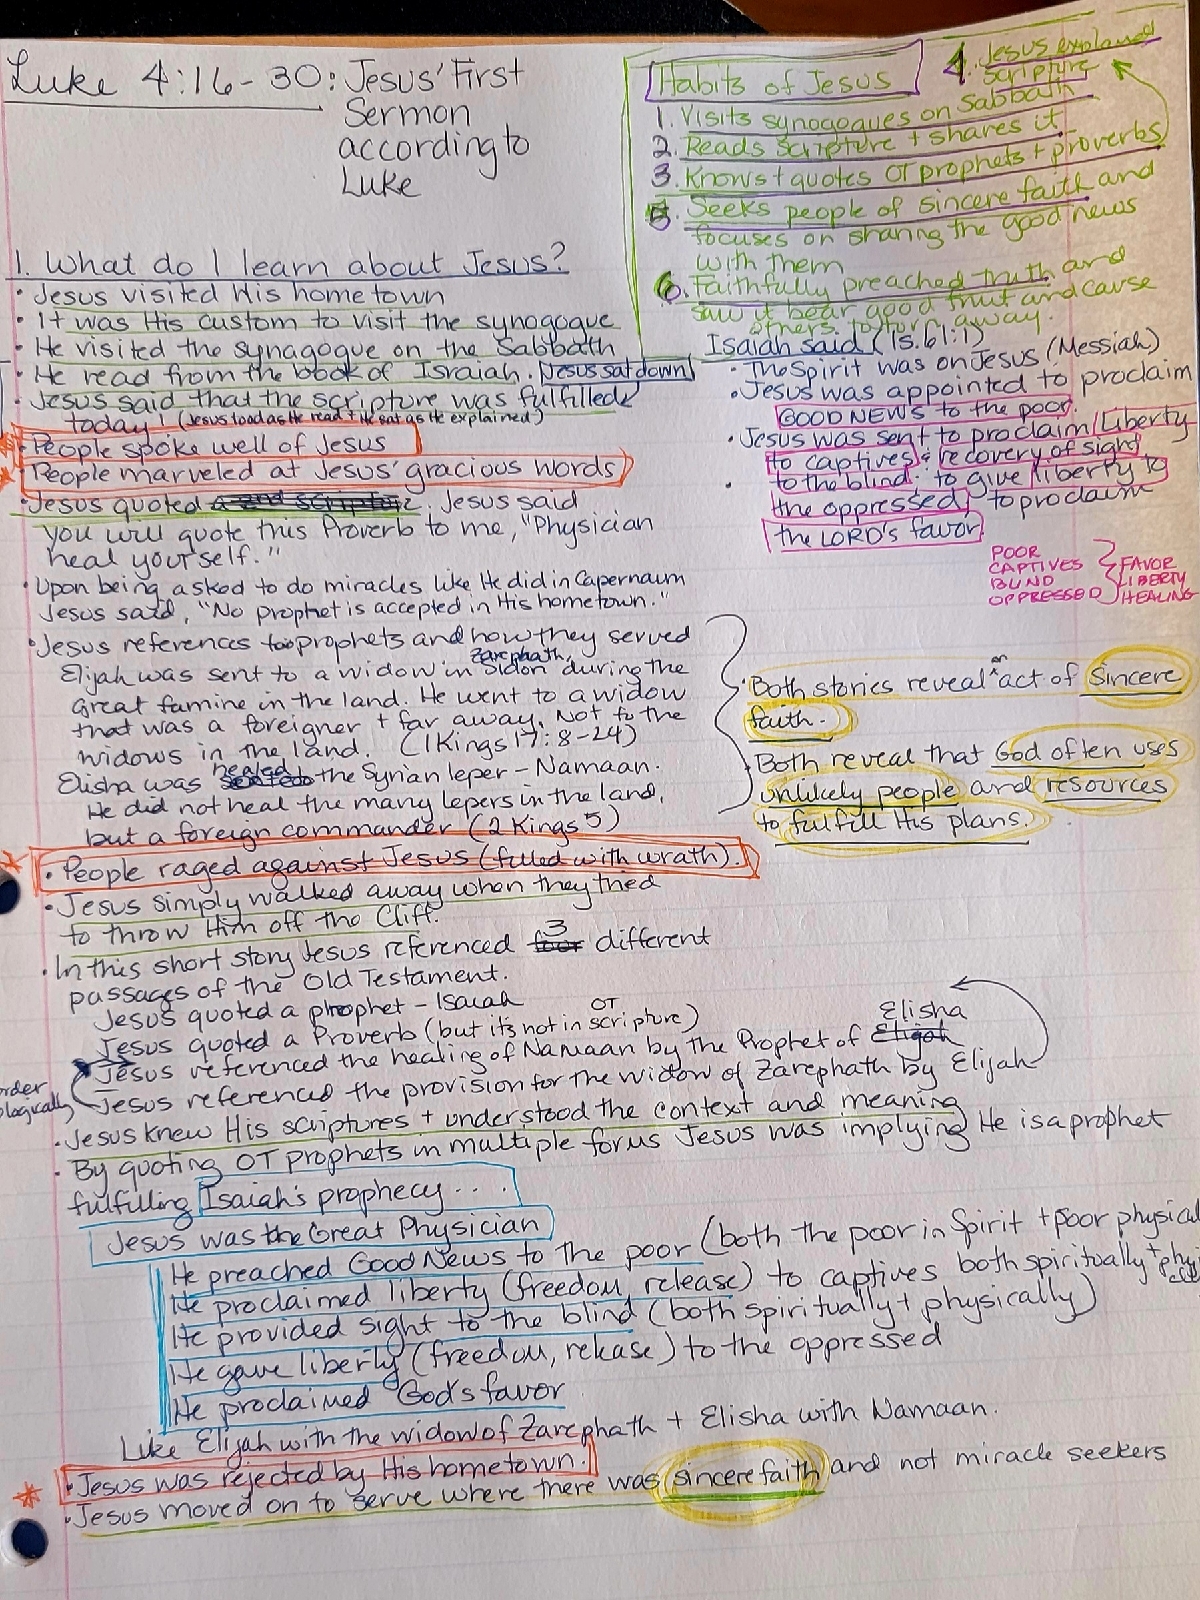 Luke 4:16-30: Jesus' First
Sermon
according to
Luke
Habits of Jesus
1. Visits synagogues on Sabbath
2. Reads scripture + shares it
3. Knows + quotes OT prophets + proverbs
4. Jesus explained
scripture
5. Seeks people of sincere faith and
focuses on sharing the good news
with them
6. Faithfully preached truth and
saw it bear good fruit and cause
others to turn away.
1. What do I learn about Jesus?
• Jesus visited His hometown
• It was His custom to visit the synagogue
• He visited the synagogue on the Sabbath
• He read from the book of Israiah. Jesus sat down
• Jesus said that the scripture was fulfilled
today! (Jesus stood as He read + He sat as He explained)
• People spoke well of Jesus
People marveled at Jesus' gracious words
• Jesus quoted a and scripture. Jesus said
you will quote this Proverb to me, "Physician
heal yourself."
• Upon being asked to do miracles like He did in Capernaum
Jesus said, "No prophet is accepted in His hometown."
• Jesus references two prophets and how they served
Elijah was sent to a widow in Zarephath, Sidon during the
great famine in the land. He went to a widow
that was a foreigner + far away. Not to the
widows in the land. (1 Kings 17:8-24)
Elisha was healed the Syrian leper - Namaan.
He did not heal the many lepers in the land,
but a foreign commander (2 Kings 5)
Isaiah said (Is. 61:1)
• The Spirit was on Jesus (Messiah)
• Jesus was appointed to proclaim
GOOD NEWS to the poor.
• Jesus was sent to proclaim liberty
to captives & recovery of sight
to the blind; to give liberty to
• the oppressed, to proclaim
the LORD's favor
POOR
CAPTIVES
BLIND
OPPRESSED
FAVOR
LIBERTY
HEALING
• Both stories reveal an act of sincere
faith.
Both reveal that God often uses
unlikely people and resources
to fulfill His plans.
• People raged against Jesus (filled with wrath).
• Jesus simply walked away when they tried
to throw Him off the Cliff.
• In this short story Jesus referenced four 3 different
passages of the Old Testament.
Jesus quoted a prophet - Isaiah
Jesus quoted a Proverb (but it's not in OT scripture)
Jesus referenced the healing of Namaan by the Prophet of Elijah Elisha
Jesus referenced the provision for the widow of Zarephath by Elijah
• Jesus knew His scriptures + understood the context and meaning
• By quoting OT prophets in multiple forms Jesus was implying He is a prophet
fulfilling Isaiah's prophecy...
Jesus was the Great Physician
He preached Good News to the poor (both the poor in Spirit + poor physical
He proclaimed liberty (freedom, release) to captives both spiritually +
He provided sight to the blind (both spiritually + physically)
He gave liberty (freedom, release) to the oppressed
He proclaimed God's favor
Like Elijah with the widow of Zarephath + Elisha with Namaan.
• Jesus was rejected by His hometown.
• Jesus moved on to serve where there was sincere faith and not miracle seekers